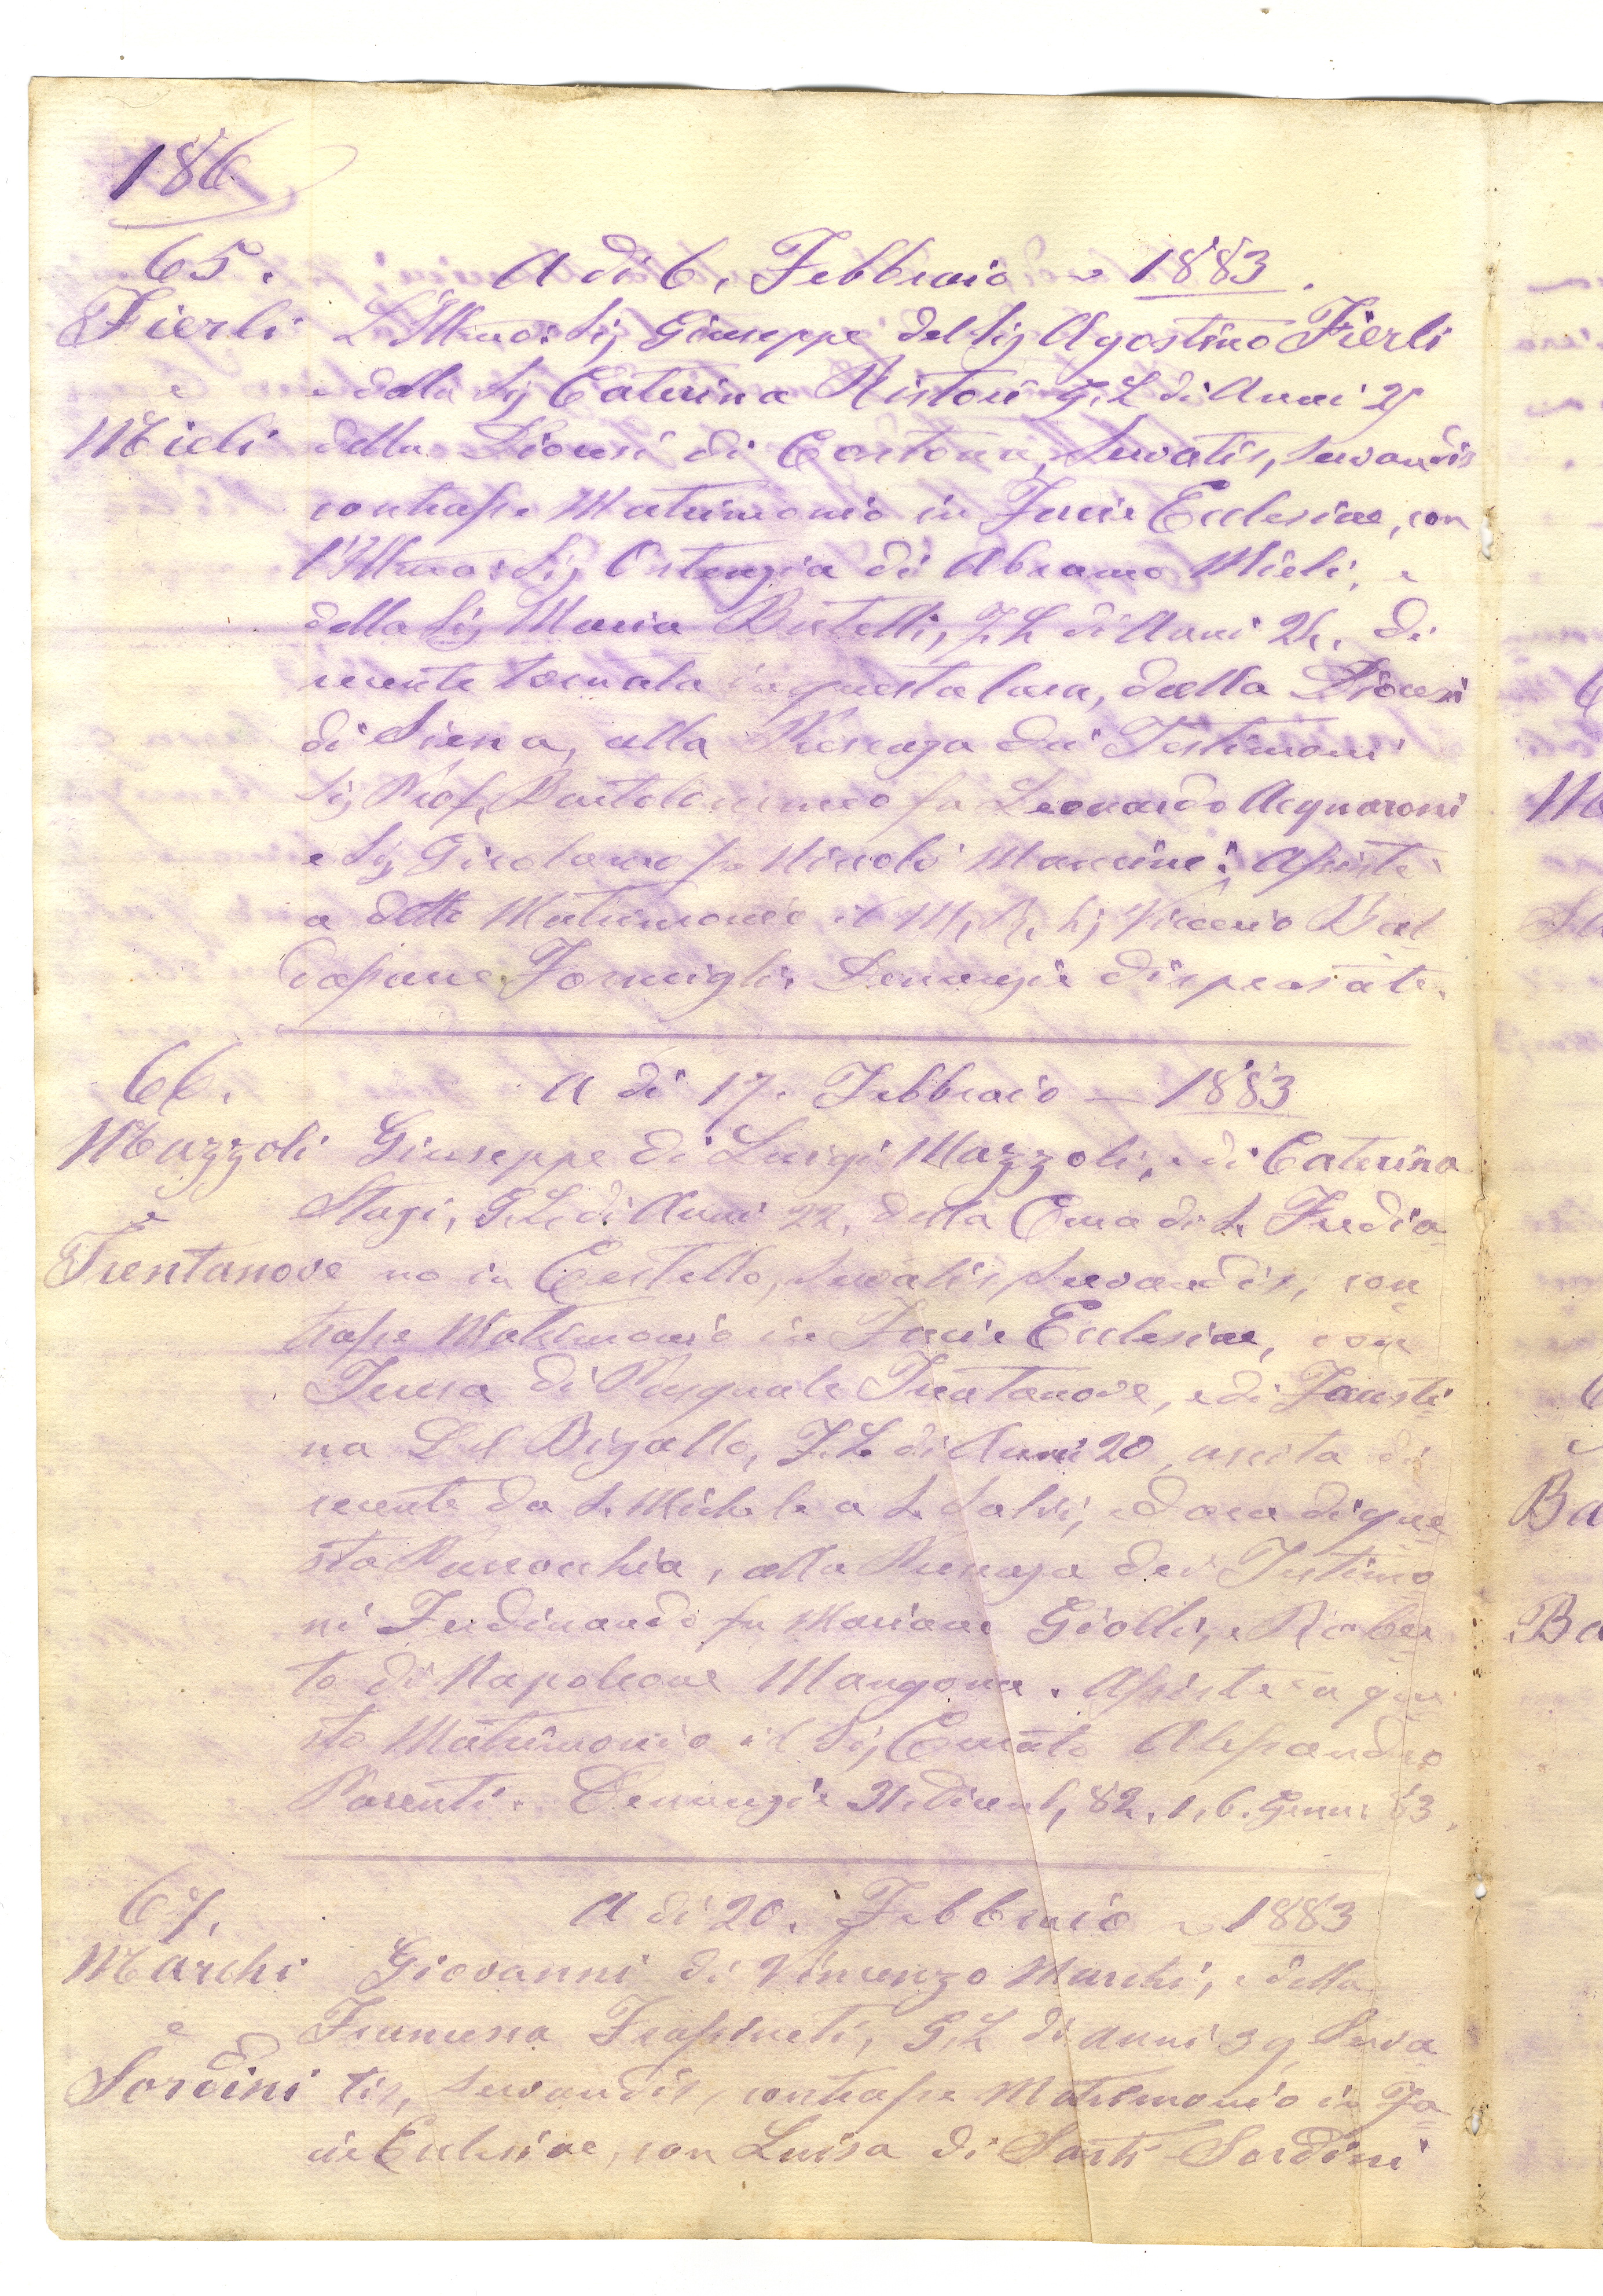 186
65.
A dì 6. Febbraio ~ 1883.
Fierli
e
Mieli
L'Illmo: Sig Giuseppe del Sig Agostino Fierli
e della Sig Caterina Ristori G. L di Anni 25
della Diocesi di Cortona, Servatis, servandis
contrasse Matrimonio in Facie Ecclesiae, con
l'Illma: Sig Ortenzia di Abramo Mieli, e
della Sig Maria Bertelli, F. L di Anni 24. Di
recente tornata in questa Cura, dalla Diocesi
di Siena, alla Presenza dei Testimoni
Sig Prof. Bartolommeo fu Leonardo Acquaroni
e Sig Girolamo fu Niccolò Mancini: Assisté
a detto Matrimonio il M. R. Sig Vicario
Formigli. Denunzie dispensate.
66.
A dì 17. Febbraio — 1883
Mazzoli
e
Trentanove
Giuseppe di Luigi Mazzoli, e di Caterina
Stagi, G. L. di Anni 22, della Cura di S. Fredia=
no in Cestello, Servatis, servandis, con=
trasse Matrimonio in Facie Ecclesiae, con
Teresa di Pasquale Trentanove, e di Fausti=
na Del Bigallo, F. L. di Anni 20, uscita di
recente da S. Michele a S. Salvi, ed ora di que=
sta Parrocchia, alla Presenza dei Testimo
ni Ferdinando fu Mariano Giolli, e Rober=
to di Napoleone Mangona. Assisté a que=
sto Matrimonio il Sig Curato Alessandro
Parenti. Denunzie 31. Dicemb, 82. 1, 6. Genn: 83.
67.
A dì 20. Febbraio ~ 1883
Marchi
e
Sordini
Giovanni di Vincenzo Marchi, e della
Francesca Frassineti, G. L di anni 39, Serva=
tis, servandis, contrasse Matrimonio in Fa=
cie Ecclesiae, con Luisa di Santi Sordini